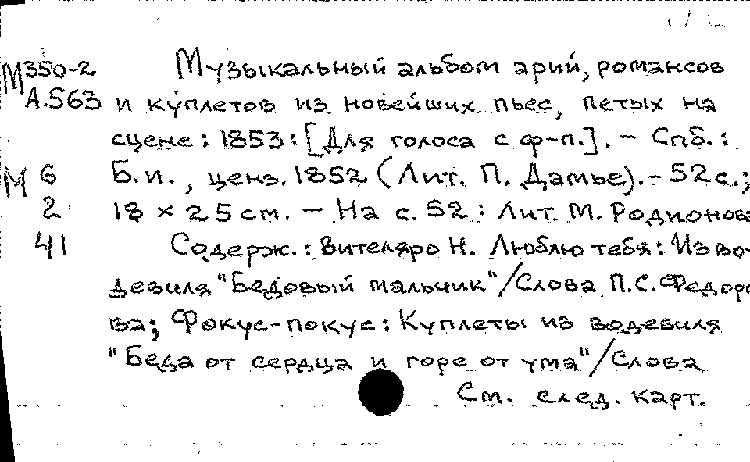 М350-2 Музыкальный альбом арий, романсов
А.563 и куплетов из новейших пьес, петых на
сцене: 1853: [Для голоса с ф-п.]. - Спб.:
М 6 Б.и., ценз. 1852 (Лит. П. Дамье). - 52 с.;
2 18 × 25 см. - На с. 52: Лит. М. Родионов
41 Содерж.: Вителяро Н. Люблю тебя: Из во-
девиля "Бедовый мальчик"/Слова П.С. Федоро
ва; Фокус-покус: Куплеты из водевиля
"Беда от сердца и горе от ума"/Слова
См. след. карт.